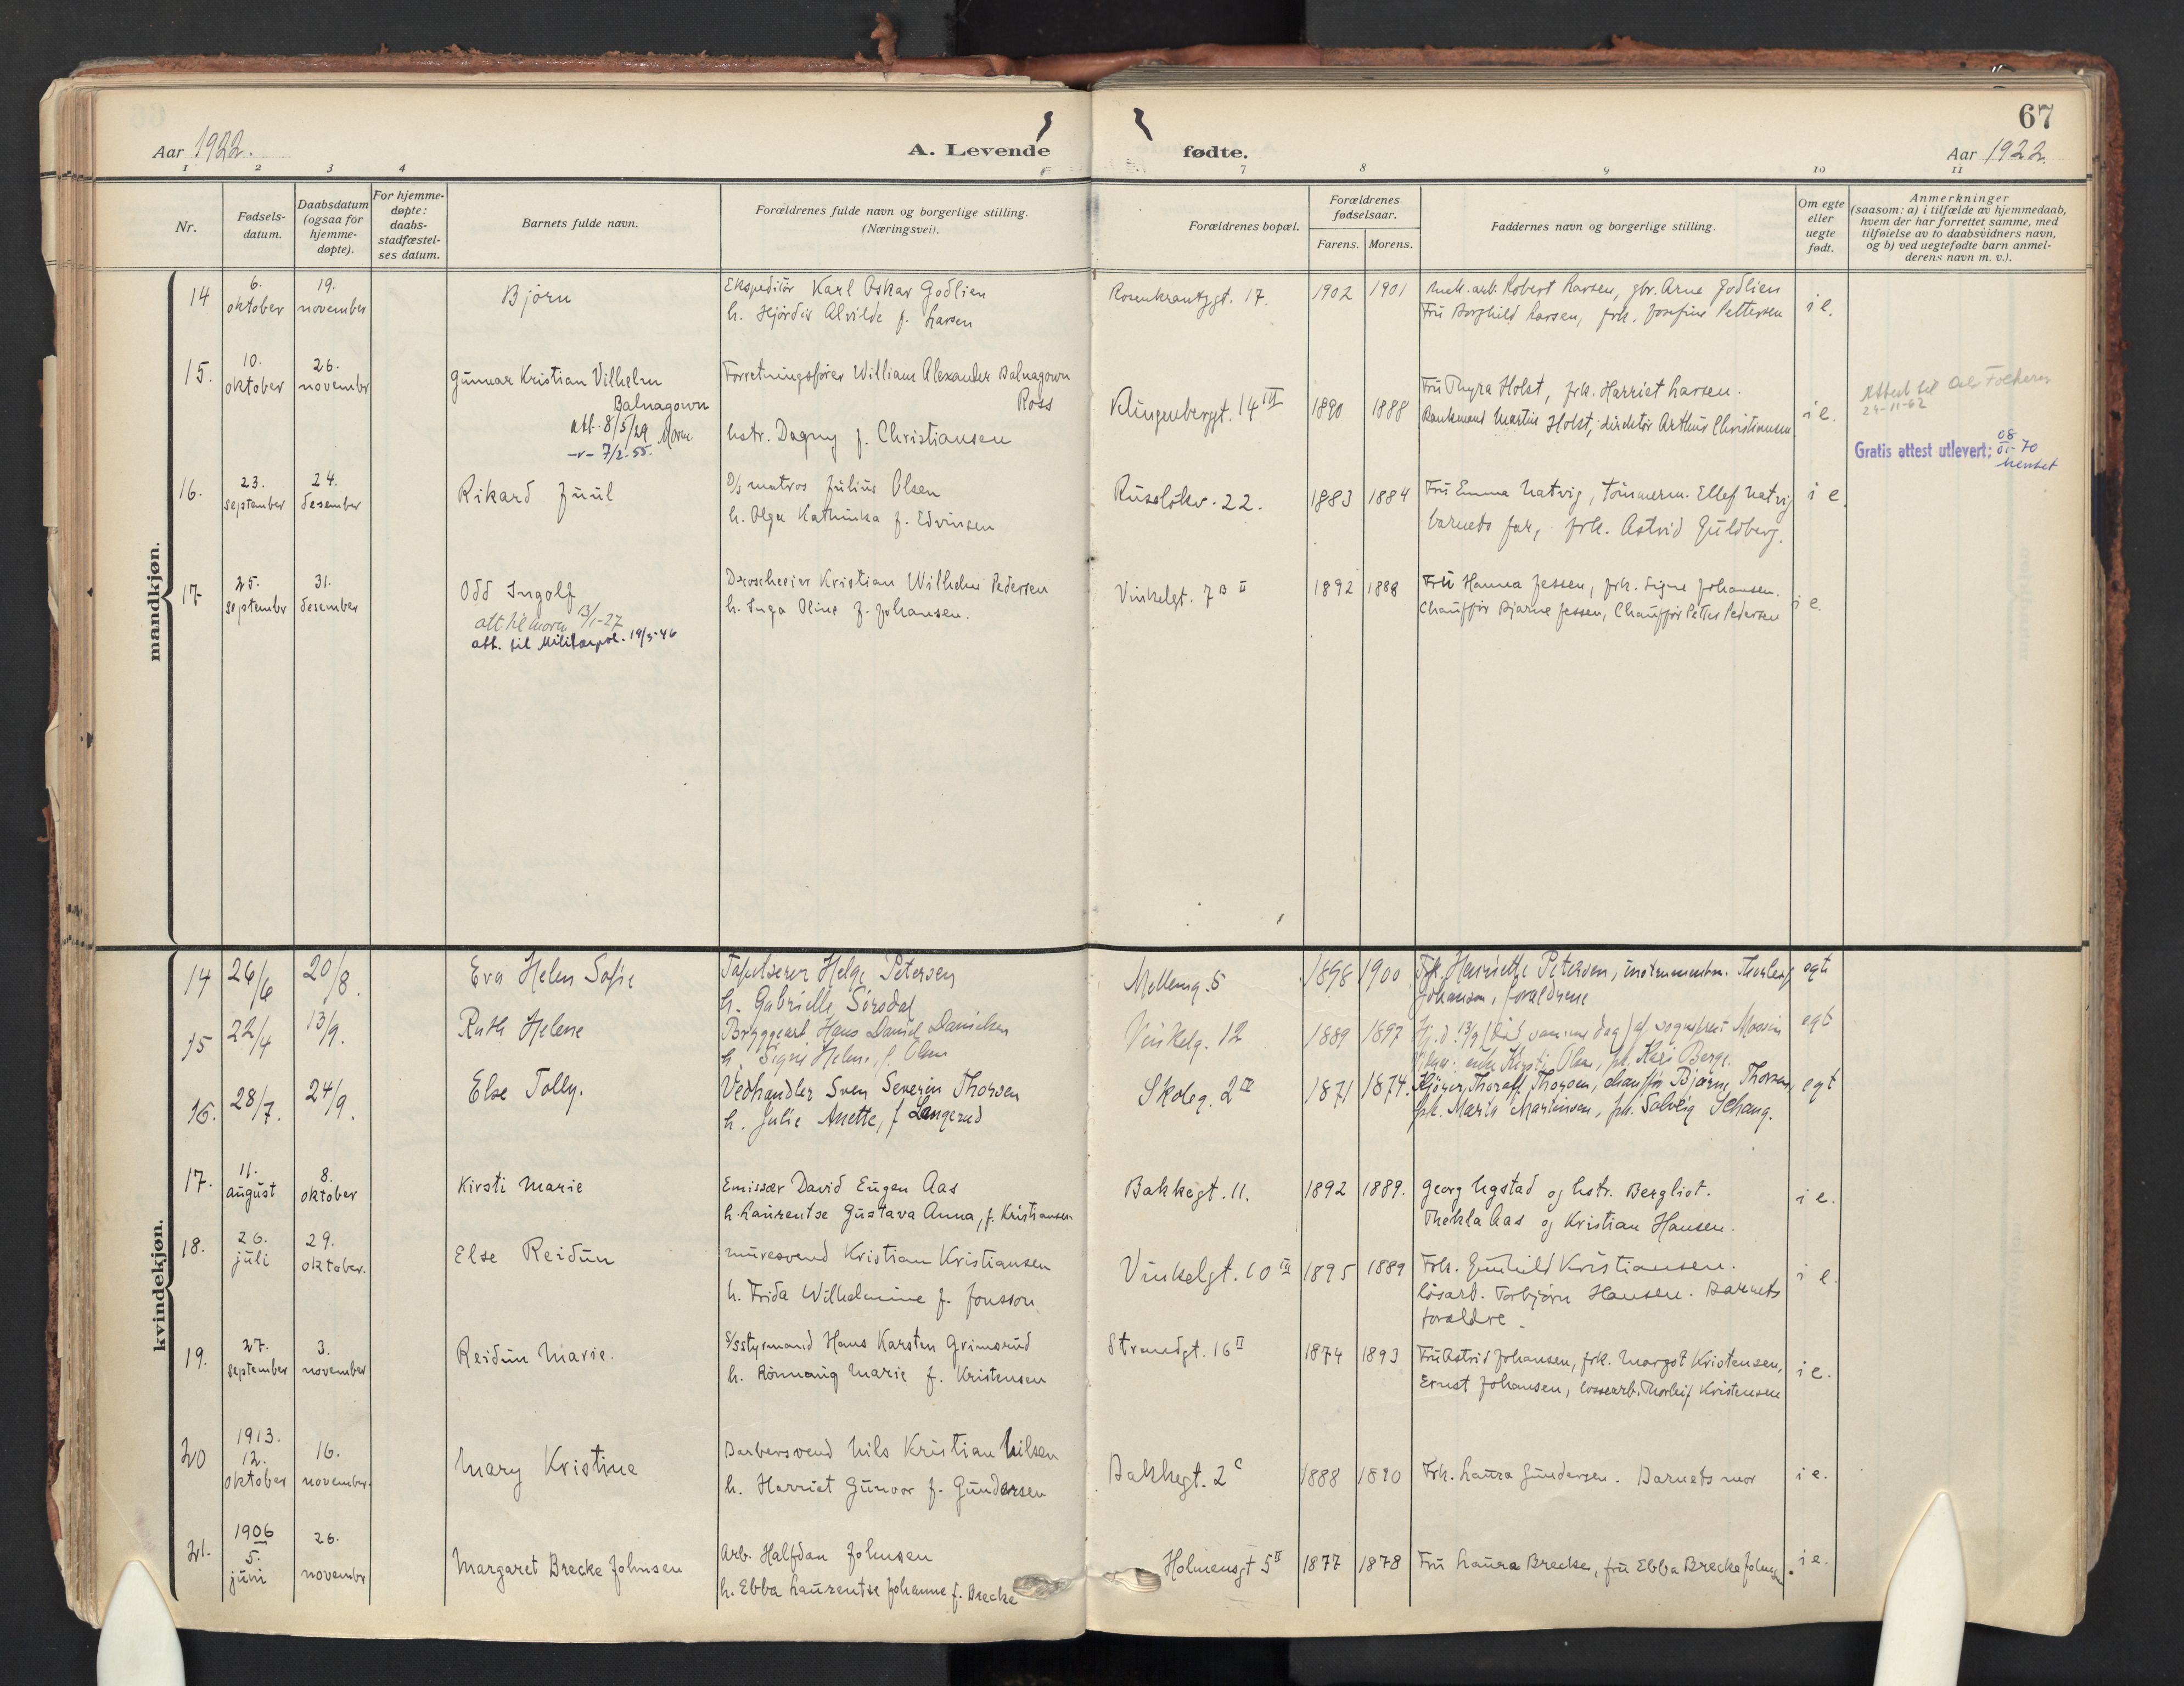 67
Aar 1922.
A. Levende
fødte.
Aar 1922.
1 2 3 4
7 8 9 10 11
Nr.
Fødsels-
datum.
Daabsdatum
(ogsaa for
hjemme-
døpte).
For hjemme-
døpte:
daabs-
stadfæstel-
ses datum.
Barnets fulde navn.
Forældrenes fulde navn og borgerlige stilling.
(Næringsvei).
Forældrenes bopæl.
Forældrenes
fødselsaar.
Farens. Morens.
Faddernes navn og borgerlige stilling.
Om egte
eller
uegte
født.
Anmerkninger
(saasom: a) i tilfælde av hjemmedaab,
hvem der har forrettet samme, med
tilføielse av to daabsvidners navn,
og b) ved uegtefødte barn anmel-
derens navn m. v.).
mandkjøn.
14
6.
oktober
19.
november
Bjørn
Ekspeditør Karl Oskar Godlien
h. Hjørdis Alvilde f. Larsen
Rosenkrantzgt. 17.
1902 1901
Mek. arb. Robert Larsen, gbr. Arne Godlien
Fru Borghild Larsen, frk. Josefine Pettersen
i e.
15.
10.
oktober
26.
november
Gunnar Kristian Vilhelm
Balnagown
att. 8/5/29 Moren
-"- 7/2-55.
Forretningsfører William Alexander Balnagown
Ross
hstr. Dagny f. Christiansen
Klingenberggt. 14 IV
1890 1888
Fru Thyra Holst, frk. Harriet Larsen.
Bankmand Martin Holst, direktør Arthur Christiansen
i e.
Attest til Oslo Folkereg
24-11-62
Gratis attest utlevert: 08/01-70
hentet
16.
23.
september
24.
desember
Rikard Juul
D/s matros Julius Olsen
h. Olga Kathinka f. Edvinsen
Ruseløkv. 22.
1883 1884
Fru Emma Natvig, tømmerm. Ellef Natvig
barnets far, frk. Astrid Guldberg.
i e.
17
25.
september
31.
desember
Odd Ingolf
att. til moren 13/1-27
att. til Militærpol. 19/5-46
Droscheeier Kristian Wilhelm Pedersen
h. Inga Oline f. Johansen.
Vinkelgt. 7 B II
1892 1888
Fru Hanna Jessen, frk. Signe Johansen.
Chauffør Bjarne Jessen, Chauffør Petter Pedersen
i e.
kvindekjøn.
14
26/6
20/8.
Eva Helen Sofie
Tapetserer Helge Petersen
h. Gabrielle Sørsdal
Mellemg. 5
1898 1900
Frk. Henriette Petersen, instrumentm. Thorleif
Johansen, forældrene
egte
15
22/4
13/9.
Ruth Helene
Bryggearb. Hans Daniel Danielsen
h. Signe Helene, f. Olsen
Vinkelg. 12
1889 1897
Hj.d. 13/9 (død samme dag) af sogneprest
enke Kirsti Olsen, frk. Kari Berge.
egt
16.
28/7.
24/9.
Else Tolly.
Vedhandler Sven Severin Thorsen
h. Julie Anette, f Langerud
Skoleg. 2 IV
1871 1874.
Thoralf Thorsen, chauffør Bjarne Thorsen,
frk. Marta Martinsen, frk. Solveig Schang.
egt
17.
11.
august
8.
oktober
Kirsti Marie
Emissær David Eugen Aas
h. Laurentse Gustava Anna, f. Kristiansen
Bakkegt. 11.
1892 1889.
Georg Ugstad og hstr. Bergliot.
Thekla Aas og Kristian Hansen.
i e.
18.
26.
juli
29.
oktober.
Else Reidun
muresvend Kristian Kristiansen
h. Frida Wilhelmine f. Jonsson.
Vinkelgt. 10 III
1895 1889
Frk. Gunhild Kristiansen.
løsarb. Torbjørn Hansen. Barnets
forældre.
i e.
19.
27.
september
3.
november
Reidun Marie.
S/Sstyrmand Hans Karsten Grimsrud
h. Rønnaug Marie f. Kristensen
Strandgt. 16 II
1874 1893
Fru Astrid Johansen, frk. Margot Kristensen,
Ernst Johansen, lossearb. Thorleif Kristensen
i e.
20
1913.
12.
oktober
16.
november.
Mary Kristine
Barbersvend Nils Kristian Nilsen
h. Harriet Gunvor f. Gundersen
Bakkegt. 2 c
1888 1890
Frk. Laura Gundersen. Barnets mor
i e.
21.
1906
5.
juni
26.
november
Margaret Brecke Johnsen
Arb. Halfdan Johnsen
h. Ebba Laurentse Johanne f. Brecke
Holmensgt 5 II
1877 1878
Fru Laura Brecke, fru Ebba Brecke Johnsen.
i e.